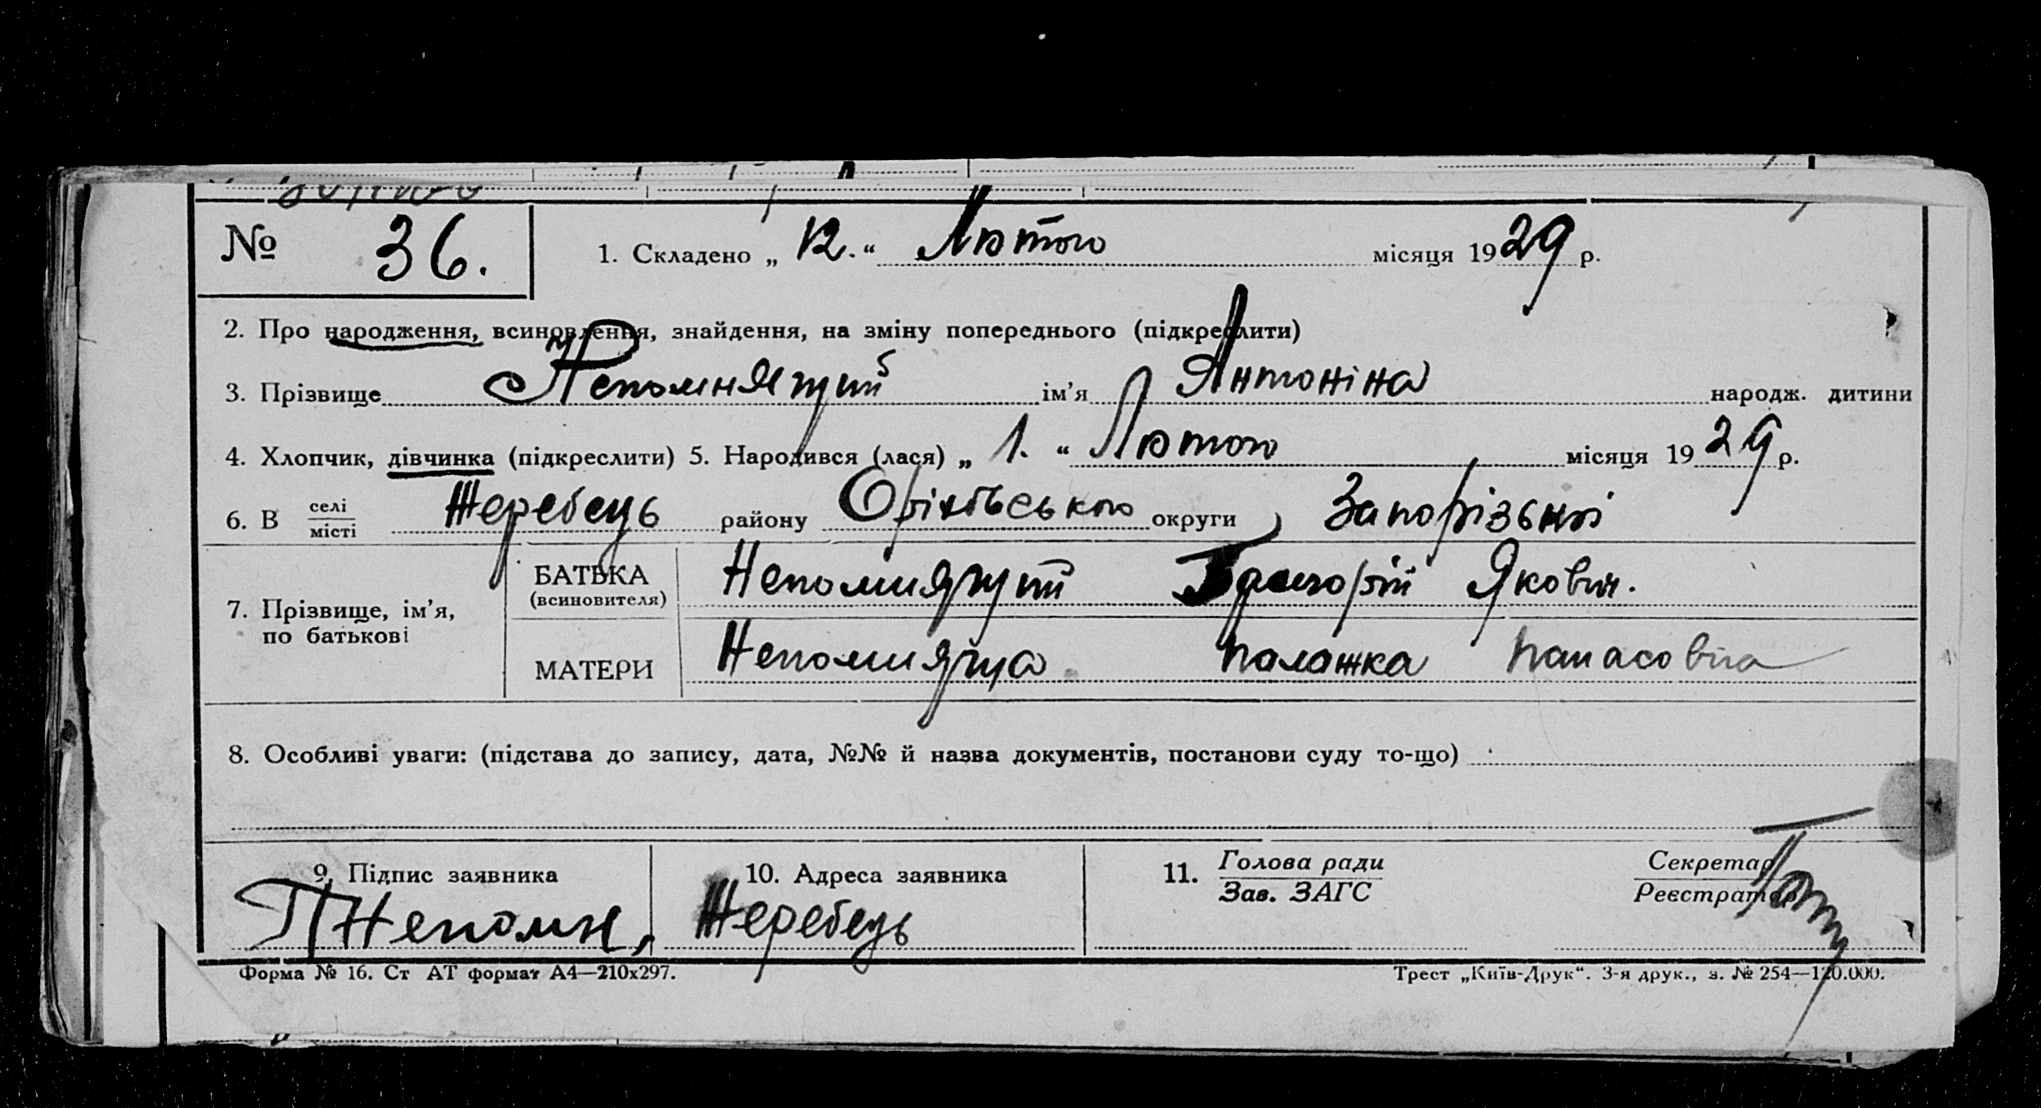 № 36.
1. Складено „ 12. “ Лютого місяця 1929 р.
2. Про народження, всиновлення, знайдення, на зміну попереднього (підкреслити)
3. Прізвище Непомнящий ім’я Антоніна народж. дитини
4. Хлопчик, дівчинка (підкреслити) 5. Народився (лася) „ 1. “ Лютого місяця 1929 р.
6. В селі/місті Жеребець району Оріхівського округи Запорізької
7. Прізвище, ім’я, по батькові
БАТЬКА (всиновителя) Непомнящий Григорій Якович.
МАТЕРИ Непомняща Палажка Панасовна
8. Особливі уваги: (підстава до запису, дата, №№ й назва документів, постанови суду то-що)
9. Підпис заявника
10. Адреса заявника
11. Голова ради / Зав. ЗАГС
Секретар / Реєстратор
Непомн,
Жеребець
Форма № 16. Ст АТ формат А4—210х297.
Трест „Київ-Друк“. 3-я друк., з. № 254—120.000.